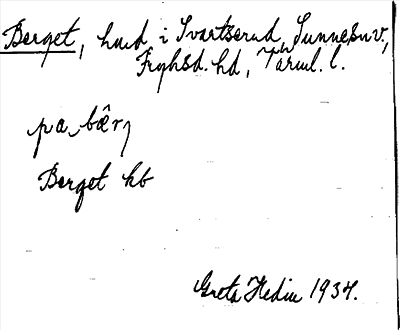 Berget, hmd i Svartserud, Sunnesn v.,
Fryksd. hd, Värml. l.
pa bær
Berget kb
Greta Hedin 1934.